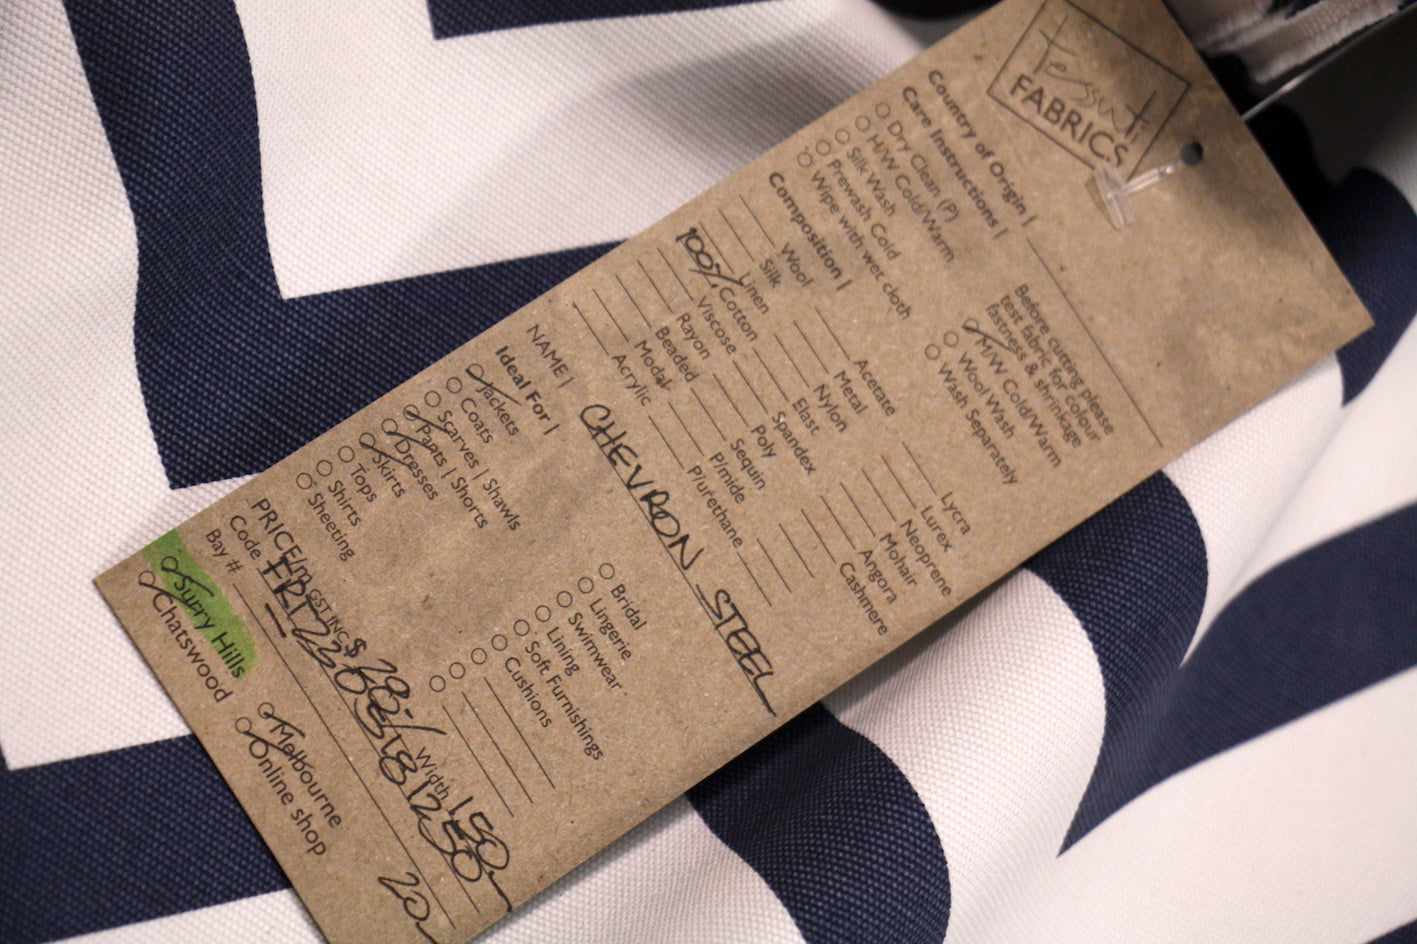 Tessuti
FABRICS
Country of Origin |
Care Instructions |
Dry Clean (P)
H/W Cold/Warm
Silk Wash
Prewash Cold
Wipe with wet cloth
Before cutting please
test fabric for colour
fastness & shrinkage
M/W Cold/Warm
Wool Wash
Wash Separately
Composition |
Wool
Silk
Linen
100% Cotton
Viscose
Rayon
Beaded
Modal
Acrylic
Acetate
Metal
Nylon
Elast
Spandex
Poly
Sequin
P/mide
P/urethane
Lycra
Lurex
Neoprene
Mohair
Angora
Cashmere
NAME | CHEVRON STEEL
Ideal For |
Jackets
Coats
Scarves | Shawls
Pants | Shorts
Dresses
Skirts
Tops
Shirts
Sheeting
Bridal
Lingerie
Swimwear
Lining
Soft Furnishings
Cushions
PRICE/m GST INC $ 29- Width 150
Code
Bay # 20
Surry Hills
Chatswood
Melbourne
Online shop